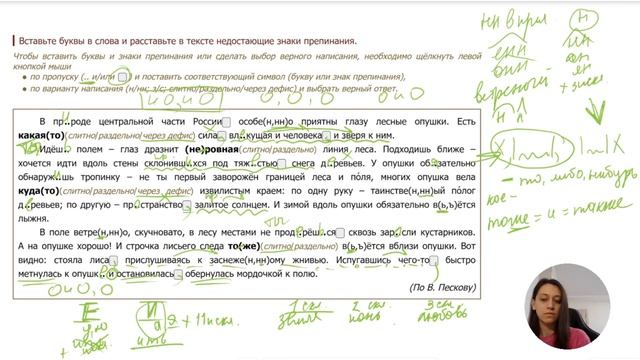 Вставьте буквы в слова и расставьте в тексте недостающие знаки препинания.
Чтобы вставить буквы и знаки препинания или сделать выбор верного написания, необходимо щёлкнуть левой
кнопкой мыши
● по пропуску (.. и/или ) и поставить соответствующий символ (букву или знак препинания),
● по варианту написания (н/нн; з/с; слитно/раздельно/через дефис) и выбрать верный ответ.
В пр..роде центральной части России особе(н,нн)о приятны глазу лесные опушки. Есть
какая(то)(слитно/раздельно/через дефис) сила, вл..кущая и человека, и зверя к ним.
Идёш.. полем – глаз дразнит (не)ровная(слитно/раздельно) линия леса. Подходишь ближе –
хочется идти вдоль стены склонивш..хся под тяж..стью снега д..ревьев. У опушки об..зательно
обнаружишь тропинку – не ты первый заворожён границей леса и поля, многих опушка вела
куда(то)(слитно/раздельно/через дефис) извилистым краем: по одну руку – таинстве(н,нн)ый полог
д..ревьев; по другую – пр..странство, залитое солнцем. И зимой вдоль опушки обязательно в(ь,ъ)ётся
лыжня.
В поле ветре(н,нн)о, скучновато, в лесу местами не прод..рёшься сквозь зар..сли кустарников.
А на опушке хорошо! И строчка лисьего следа то(же)(слитно/раздельно) в(ь,ъ)ётся вблизи опушки. Вот
видно: стояла лиса, прислушиваясь к заснеже(н,нн)ому жнивью. Испугавшись чего-то, быстро
метнулась к опушк.. и остановилась, обернулась мордочкой к полю.
(По В. Пескову)
и О, и О
О, О, О
О и О
О и О, О
то, либо, нибудь
кое-
тоже = и = также
1 скл.
2 скл.
3 скл.
земля
конь
любовь
+ 11 искл.